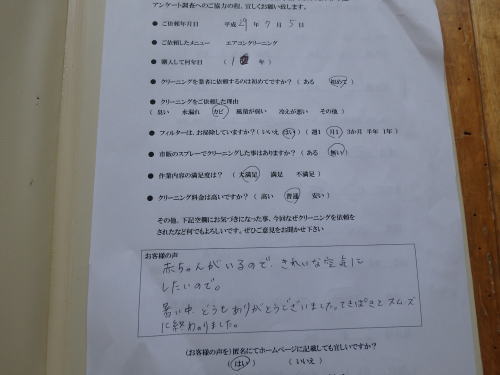 アンケート調査へのご協力の程、宜しくお願い致します。
● ご依頼年月日 平成 29 年 7 月 5 日
● ご依頼したメニュー エアコンクリーニング
● 購入して何年目 ( 1 年 )
● クリーニングを業者に依頼するのは初めてですか? ( ある 初めて )
● クリーニングをご依頼した理由
( 臭い 水漏れ カビ 風量が弱い 冷えが悪い その他 )
● フィルターは、お掃除していますか? ( いいえ はい ) ( 週1 月1 3か月 半年 1年 )
● 市販のスプレーでクリーニングした事はありますか? ( ある 無い )
● 作業内容の満足度は? ( 大満足 満足 不満足 )
● クリーニング料金は高いですか? ( 高い 普通 安い )
その他、下記空欄にお気づきになった事、今回なぜクリーニングを依頼を
されたなど何でもよろしいです。ぜひご意見をお聞かせ下さい
お客様の声
赤ちゃんがいるので、きれいな空気に
したいので。
暑い中、どうもありがとうございました。てきぱきとスムーズ
に終わりました。
(お客様の声)を匿名にてホームページに記載しても宜しいですか?
( はい ) ( いいえ )